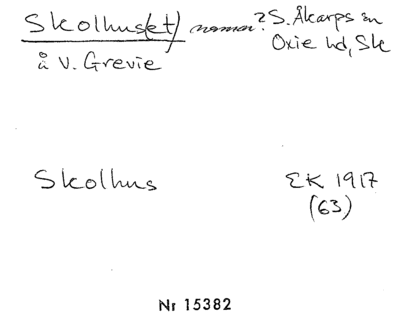 Skolhus(et) namn? ?S. Åkarps sn
å V. Grevie Oxie hd, Sk
Skolhus EK 1917
(63)
Nr 15382